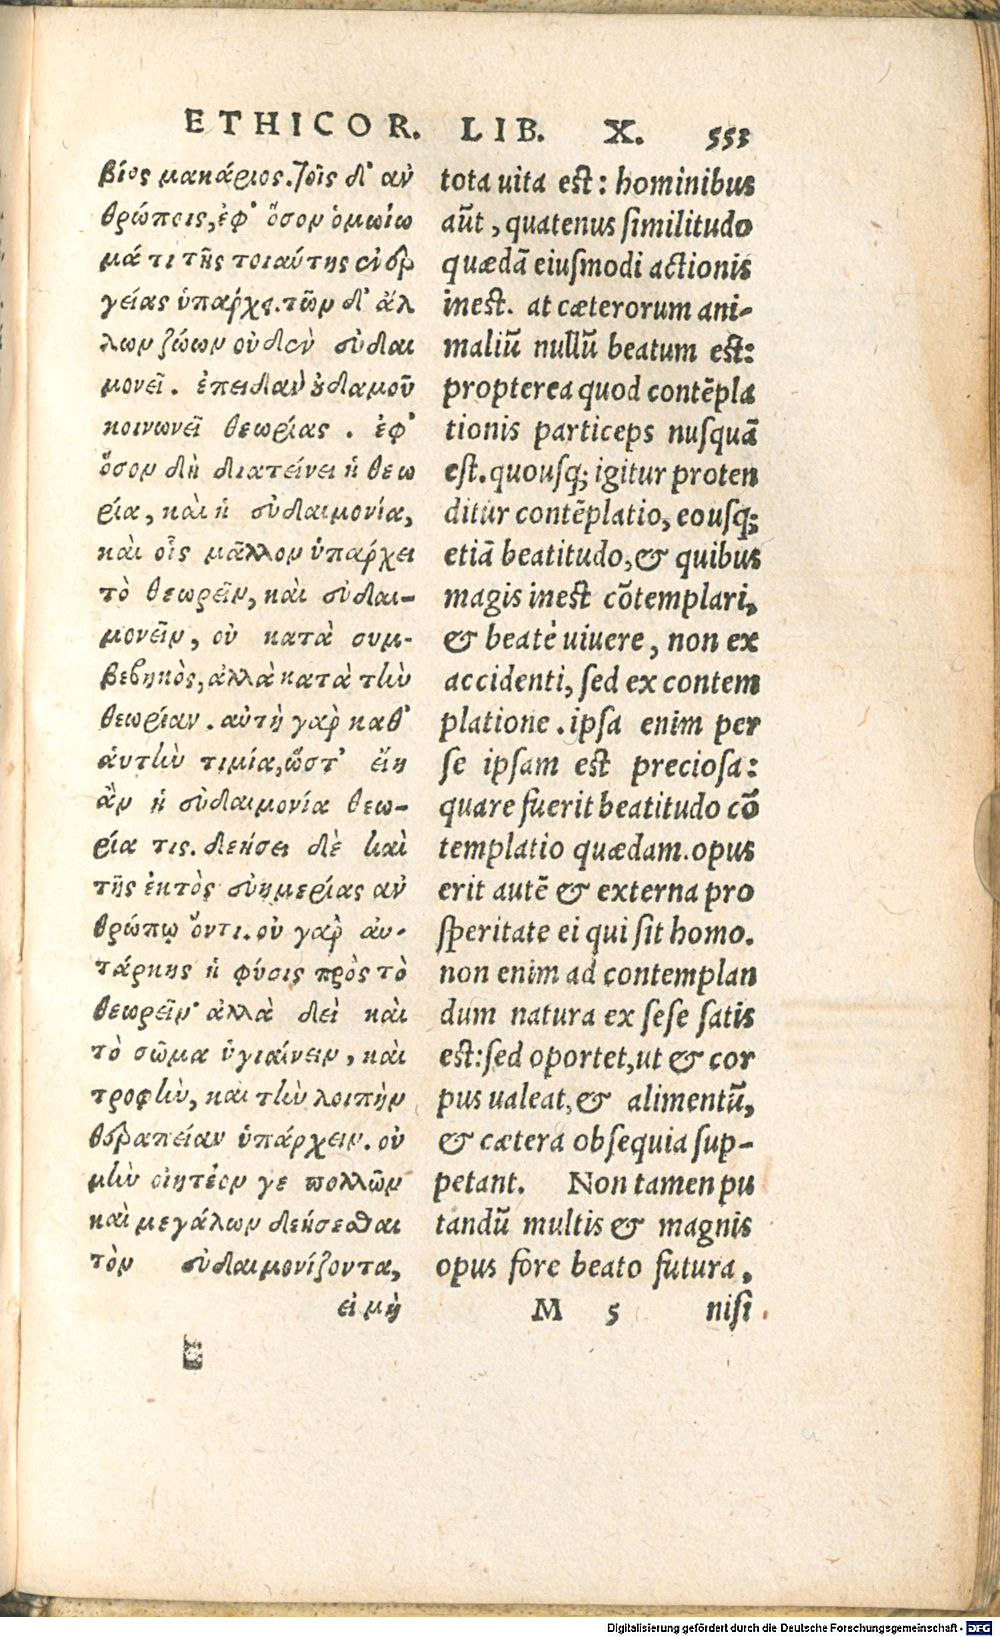 ETHICOR. LIB. X. 553
βίος μακάριος. τοῖς δ' αν
θρώποις, ἐφ' ὅσον ὁμοίω
μά τι τῆς τοιαύτης ἐνερ
γείας ὑπάρχει. τῶν δ' ἄλ
λων ζώων οὐδὲν εὐδαι
μονεῖ. ἐπειδὰν οὐδαμοῦ
κοινωνεῖ θεωρίας. ἐφ'
ὅσον δὴ διατείνει ἡ θεω
ρία, καὶ ἡ εὐδαιμονία,
καὶ οἷς μᾶλλον ὑπάρχει
τὸ θεωρεῖν, καὶ εὐδαι-
μονεῖν, οὐ κατὰ συμ-
βεβηκὸς, ἀλλὰ κατὰ τὴν
θεωρίαν. αὐτὴ γὰρ καθ'
ἁυτὴν τιμία, ὥστ' εἴη
ἂν ἡ εὐδαιμονία θεω-
ρία τις. δεήσει δὲ καὶ
τῆς ἐκτὸς εὐημερίας αν
θρώπῳ ὄντι. οὐ γὰρ αυ-
τάρκης ἡ φύσις πρὸς τὸ
θεωρεῖν· ἀλλὰ δεῖ καὶ
τὸ σῶμα ὑγιαίνειν, καὶ
τροφὴν, καὶ τὴν λοιπὴν
θεραπείαν ὑπάρχειν. οὐ
μὴν οἰητέον γε πολλῶν
καὶ μεγάλων δεήσεσθαι
τὸν εὐδαιμονίζοντα,
εἰ μὴ
tota uita est: hominibus
aũt, quatenus similitudo
quædã eiusmodi actionis
inest. at cæterorum ani-
maliũ nullũ beatum est:
propterea quod contẽpla
tionis particeps nusquã
est. quousq; igitur proten
ditur contẽplatio, eousq;
etiã beatitudo, & quibus
magis inest cõtemplari,
& beatè uiuere, non ex
accidenti, sed ex contem
platione. ipsa enim per
se ipsam est preciosa:
quare fuerit beatitudo cõ
templatio quædam. opus
erit autẽ & externa pro
speritate ei qui sit homo.
non enim ad contemplan
dum natura ex sese satis
est: sed oportet, ut & cor
pus ualeat, & alimentũ,
& cætera obsequia sup-
petant. Non tamen pu
tandũ multis & magnis
opus fore beato futura,
M 5 nisi
Digitalisierung gefördert durch die Deutsche Forschungsgemeinschaft - DFG